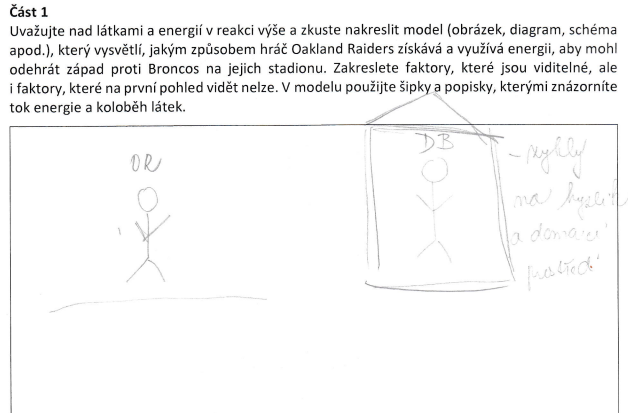 Část 1
Uvažujte nad látkami a energií v reakci výše a zkuste nakreslit model (obrázek, diagram, schéma
apod.), který vysvětlí, jakým způsobem hráč Oakland Raiders získává a využívá energii, aby mohl
odehrát západ proti Broncos na jejich stadionu. Zakreslete faktory, které jsou viditelné, ale
i faktory, které na první pohled vidět nelze. V modelu použijte šipky a popisky, kterými znázorníte
tok energie a koloběh látek.
OR
DB
- zvyklý
na kyslík
a domácí
prostředí